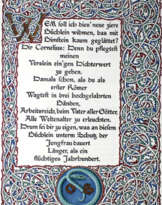 WEM soll ich dies' neue ziere
Büchlein widmen, das mit
Bimstein kaum geglättet?
Dir Cornelius: Denn du pflegtest
meinen
Verslein ein'gen Dichterwert
zu geben.
Damals schon, als du als
erster Römer
Wagtest in drei hochgelahrten
Bänden,
Arbeitsreich, beim Vater aller Götter,
Alle Weltenalter zu erleuchten.
Drum sei dir zu eigen, was an diesem
Büchlein unterm Schutz der
Jungfrau dauert
Länger, als ein
flüchtiges Jahrhundert.